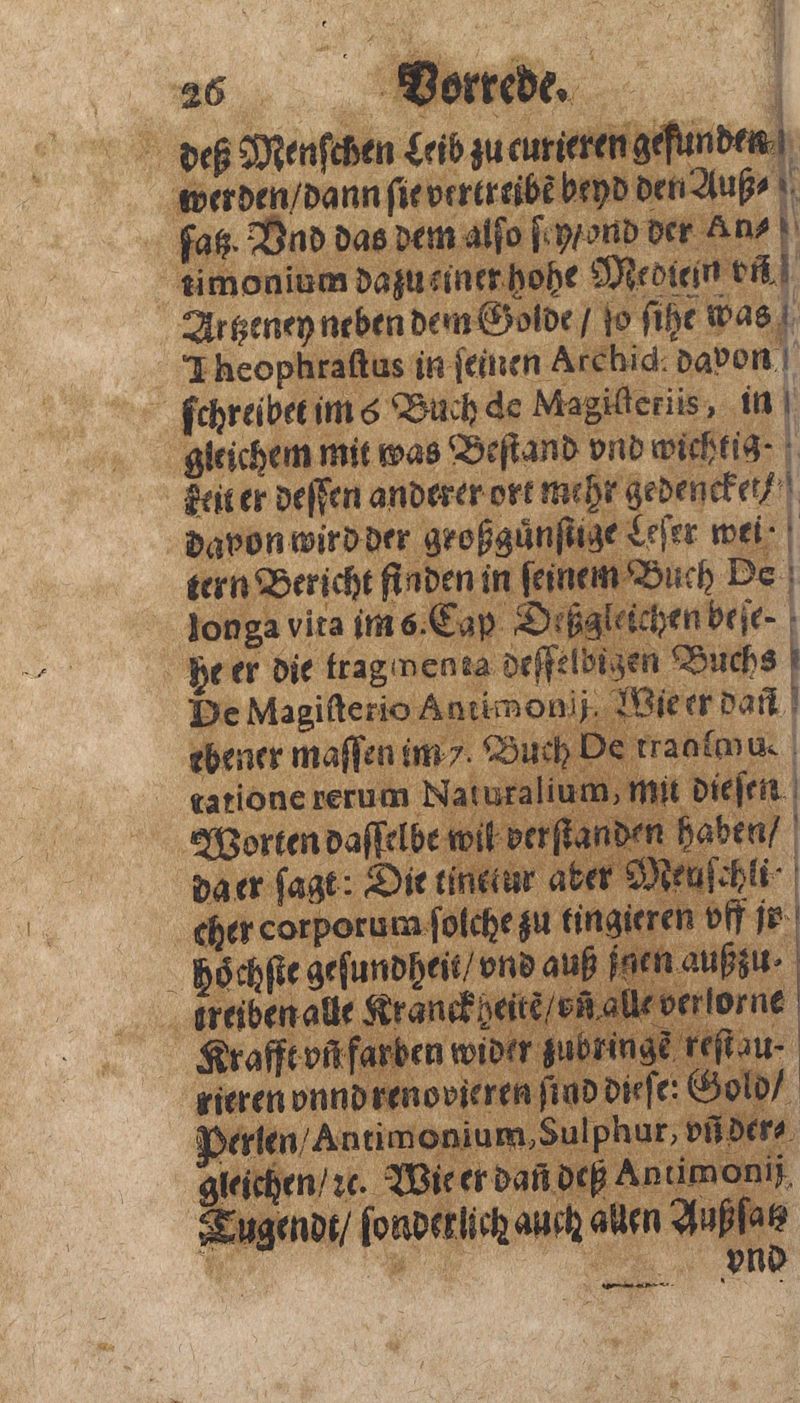 26 Vorrede.
deß Menſchen Leib zu curieren gefunden
werden/dann ſie vertreibẽ beyd den Auß⸗
ſatz. Vnd das dem alſo ſey/vnd der An⸗
timonium dazu einer hohe Medicin vñ
Artzeney neben dem Golde / ſo ſihe was
Theophraſtus in ſeinen Archid. davon
ſchreibet im 6 Buch de Magiſteriis, in
gleichem mit was Beſtand vnd wichtig-
keit er deſſen anderer ort mehr gedencket/
davon wird der großgůnſtige Leſer wei-
tern Bericht finden in ſeinem Buch De
longa vita im 6. Cap Deßgleichen beſe-
he er die fragmenta deſſelbigen Buchs
De Magiſterio Antimonij. Wie er dañ
ebener maſſen im 7. Buch De tranſmu-
tatione rerum Naturalium, mit dieſen
Worten daſſelbe wil verſtanden haben/
da er ſagt: Die tinctur aber Menſchli-
cher corporum ſolche zu tingieren vff je
hoͤchſte geſundheit/vnd auß jnen außzu-
treiben alle Kranckheitẽ/vñ alle verlorne
Krafft vñ farben wider zubringẽ reſtau-
rieren vnnd renovieren ſind dieſe: Gold/
Perlen/Antimonium, Sulphur, vñ der⸗
gleichen/ꝛc. Wie er dañ deß Antimonij
Tugendt/ ſonderlich auch allen Außſatz
vnd